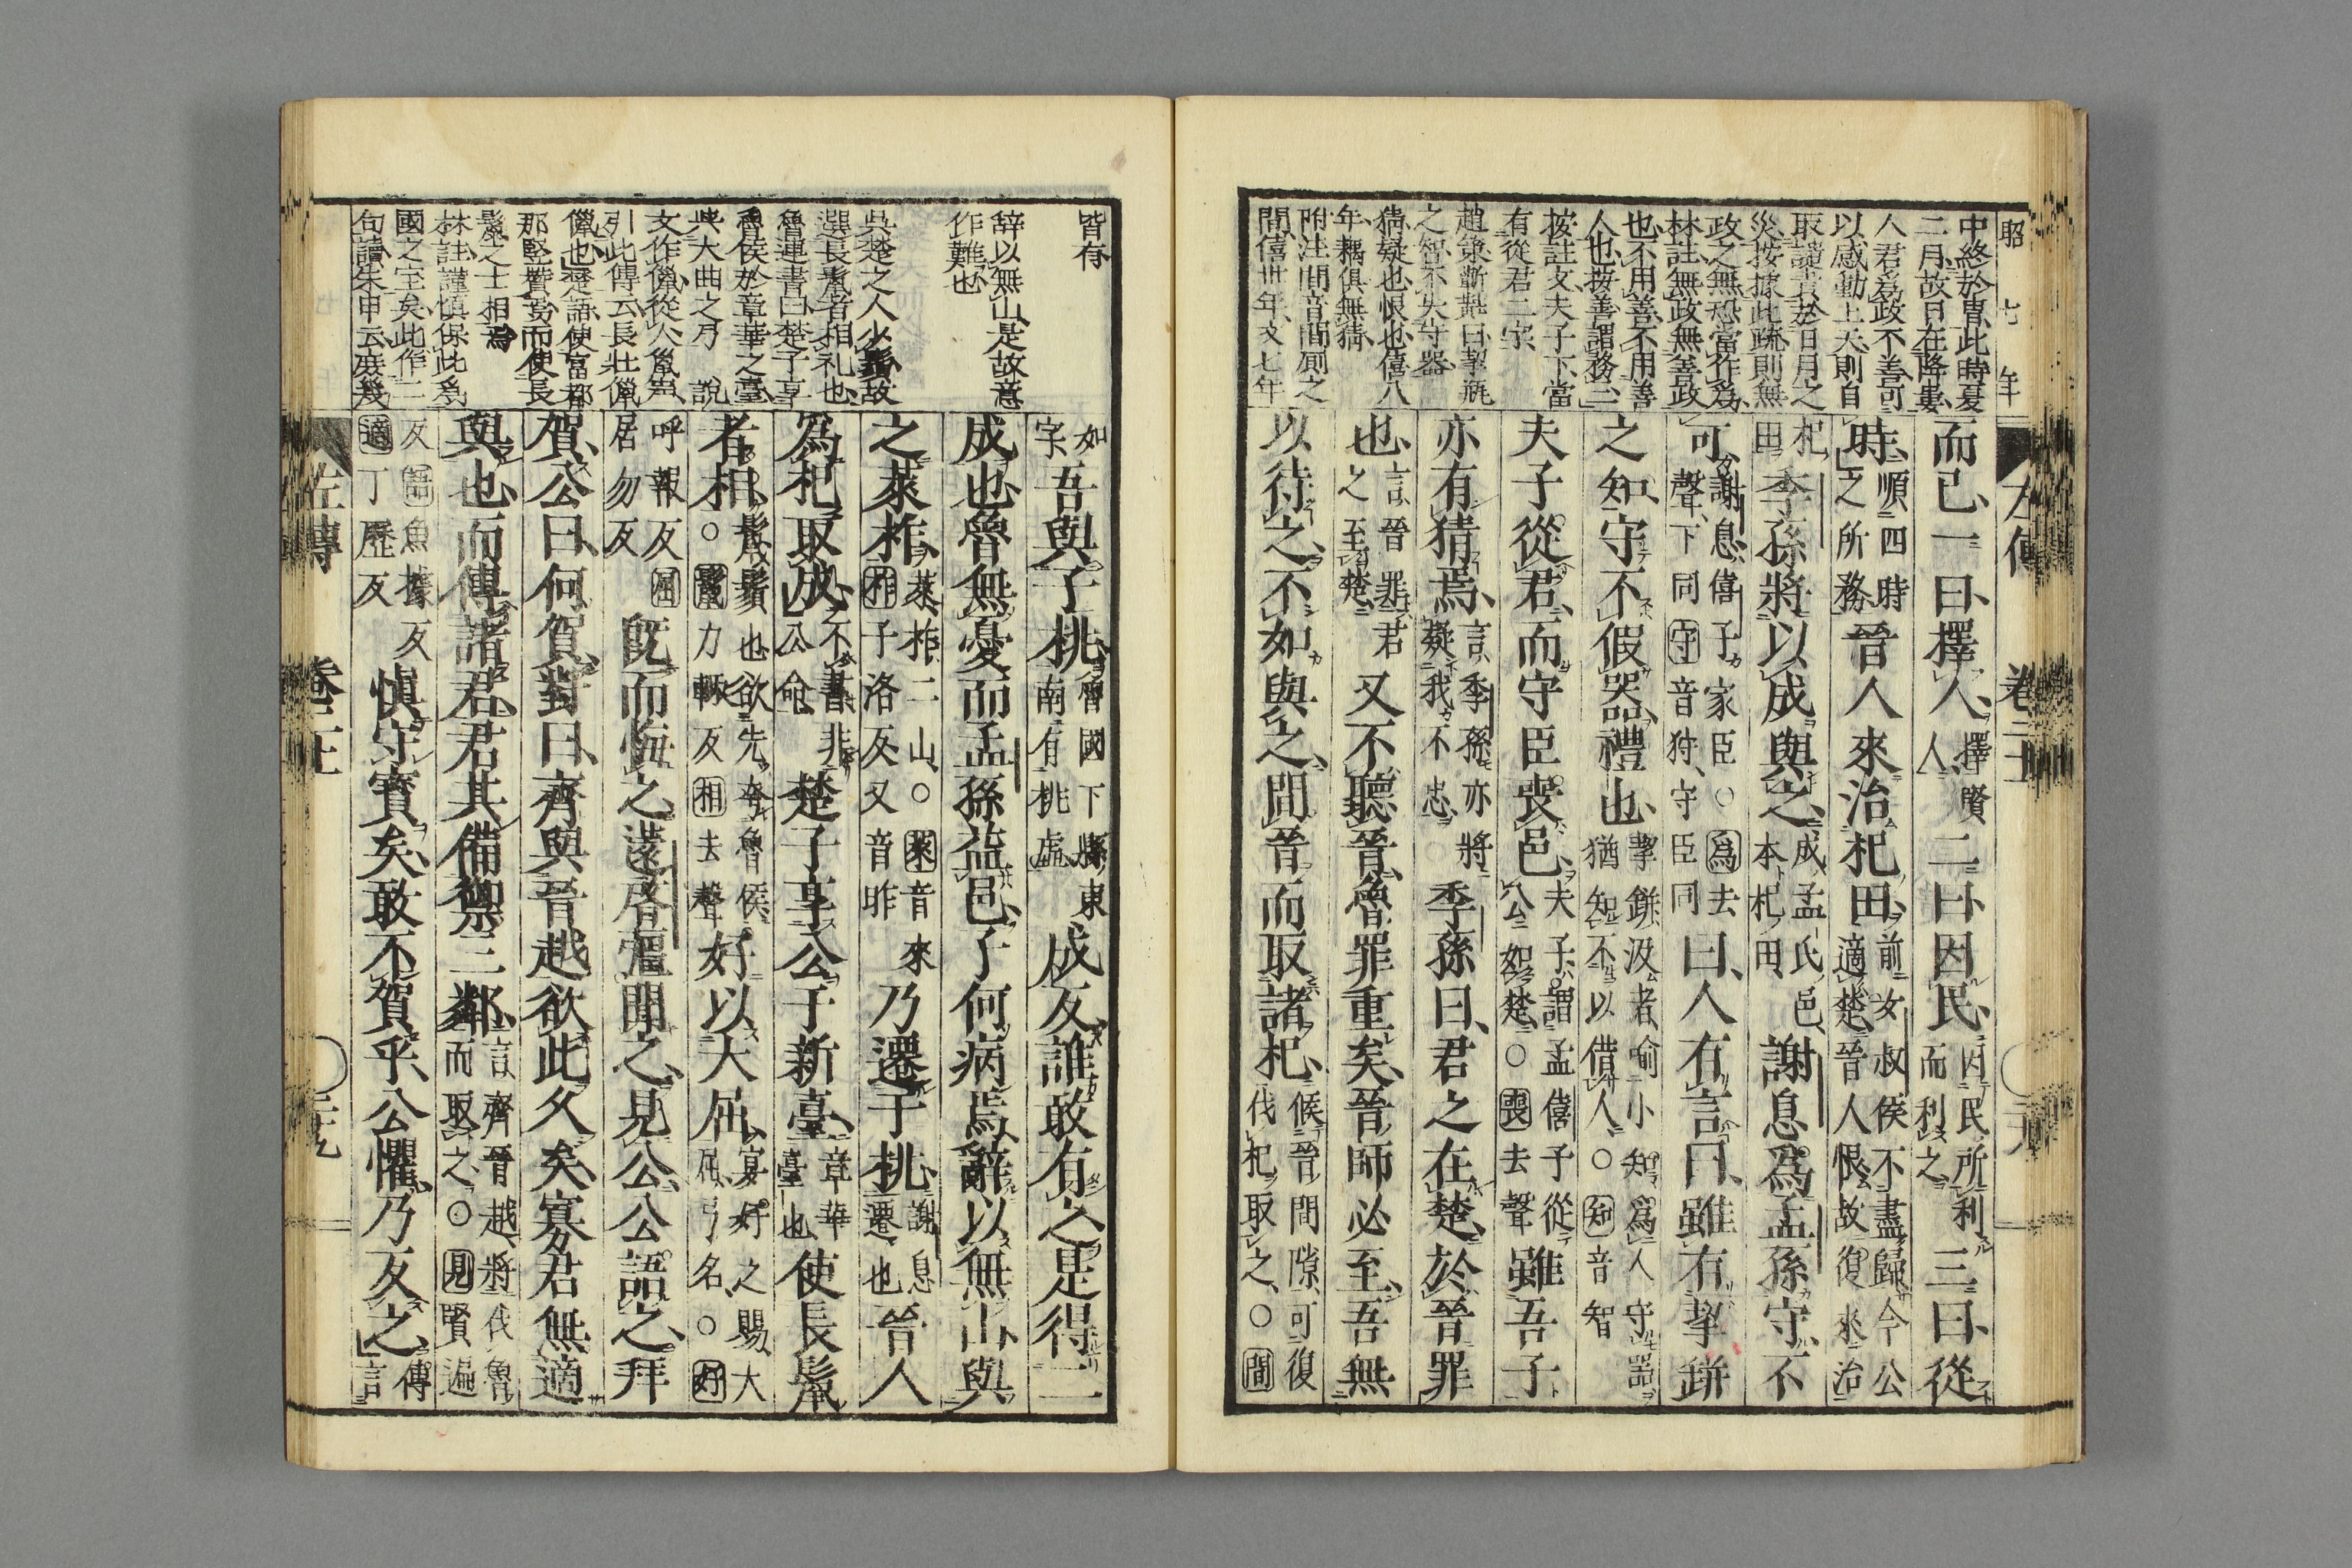 昭七年
中終於曹此時夏
二月故日在降婁
人君爲政不善可
以感動上天則自
取讁責於日月之
災按據此疏則無
政之無恐當作爲
林註無政無善政
也不用善不用善
人也按善謂務三
按註文夫子下當
有從君二字
之智不失守器
猜疑也恨也僖八
年耦俱無猜
附注間音間厠之
間僖卅年文七年
左傳
而已一曰擇人擇賢人二曰因民因民所利而利之三曰從
時順四時之所務晉人來治杞田前女叔侯不盡歸今公適楚晉人恨故復來治
杞田季孫將以成與之成孟氏邑本杞田謝息爲孟孫守不
可謝息僖子家臣○爲去聲下同守音狩守臣同曰人有言曰雖有挈缾
之知守不假器禮也挈缾汲者喻小知爲人守器猶知不以借人○知音智
夫子從君而守臣喪邑夫子謂孟僖子從公如楚○喪去聲雖吾子
亦有猜焉言季孫亦將疑我不忠季孫曰君之在楚於晉罪
也言晉罪君之至楚又不聽晉魯罪重矣晉師必至吾無
以待之不如與之間晉而取諸杞候晉間隙可復伐杞取之○間
皆有
辭以無山是故意
作難也
吳楚之人少鬚故
選長鬣者相礼也
魯連書曰楚子享
魯侯於章華之臺
與大曲之弓 說
文作儠從人巤聲
引此傳云長壯儠
儠也楚語使富都
那竪贊焉而使長
鬣之士相焉
林註謹慎保此爲
國之宝矣此作二
句讀朱申云庶幾
如字吾與子桃魯國卞縣東南有桃虛成反誰敢有之是得二
成也魯無憂而孟孫益邑子何病焉辭以無山與
之萊柞萊柞二山○萊音來柞子洛反又音昨乃遷于桃謝息遷也晉人
爲杞取成不書非公命楚子享公于新臺章華臺也使長鬣
者相鬣鬚也欲先夸魯侯○鬣力輒反相去聲好以大屈宴好之賜大屈弓名○好
呼報反屈居勿反既而悔之薳啓彊聞之見公公語之拜
賀公曰何賀對曰齊與晉越欲此久矣寡君無適
與也而傳諸君君其備禦三鄰言齊晉越將伐魯而取之○見賢遍
反語魚據反適丁歷反慎守寶矣敢不賀乎公懼乃反之傳言
左傳